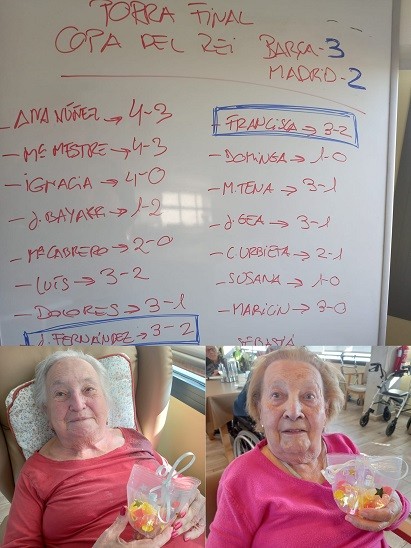 PORRA FINAL
COPA DEL REI
BARÇA-3
MADRID-2
-ANA NÚÑEZ → 4-3
-Mª MESTRE → 4-3
-IGNACIA → 4-0
-J. BAYARR → 1-2
-Mª CABRERO → 2-0
-LUÍS → 3-2
-DOLORES → 3-1
J. FERNÁNDEZ → 3-2
-FRANCISCA → 3-2
-DOMINGA → 1-0
-M. TENA → 3-1
-J. GEA → 3-1
-C. URBIETA → 2-1
-SUSANA → 1-0
-MARICIN → 3-0
SEBASTIÁ